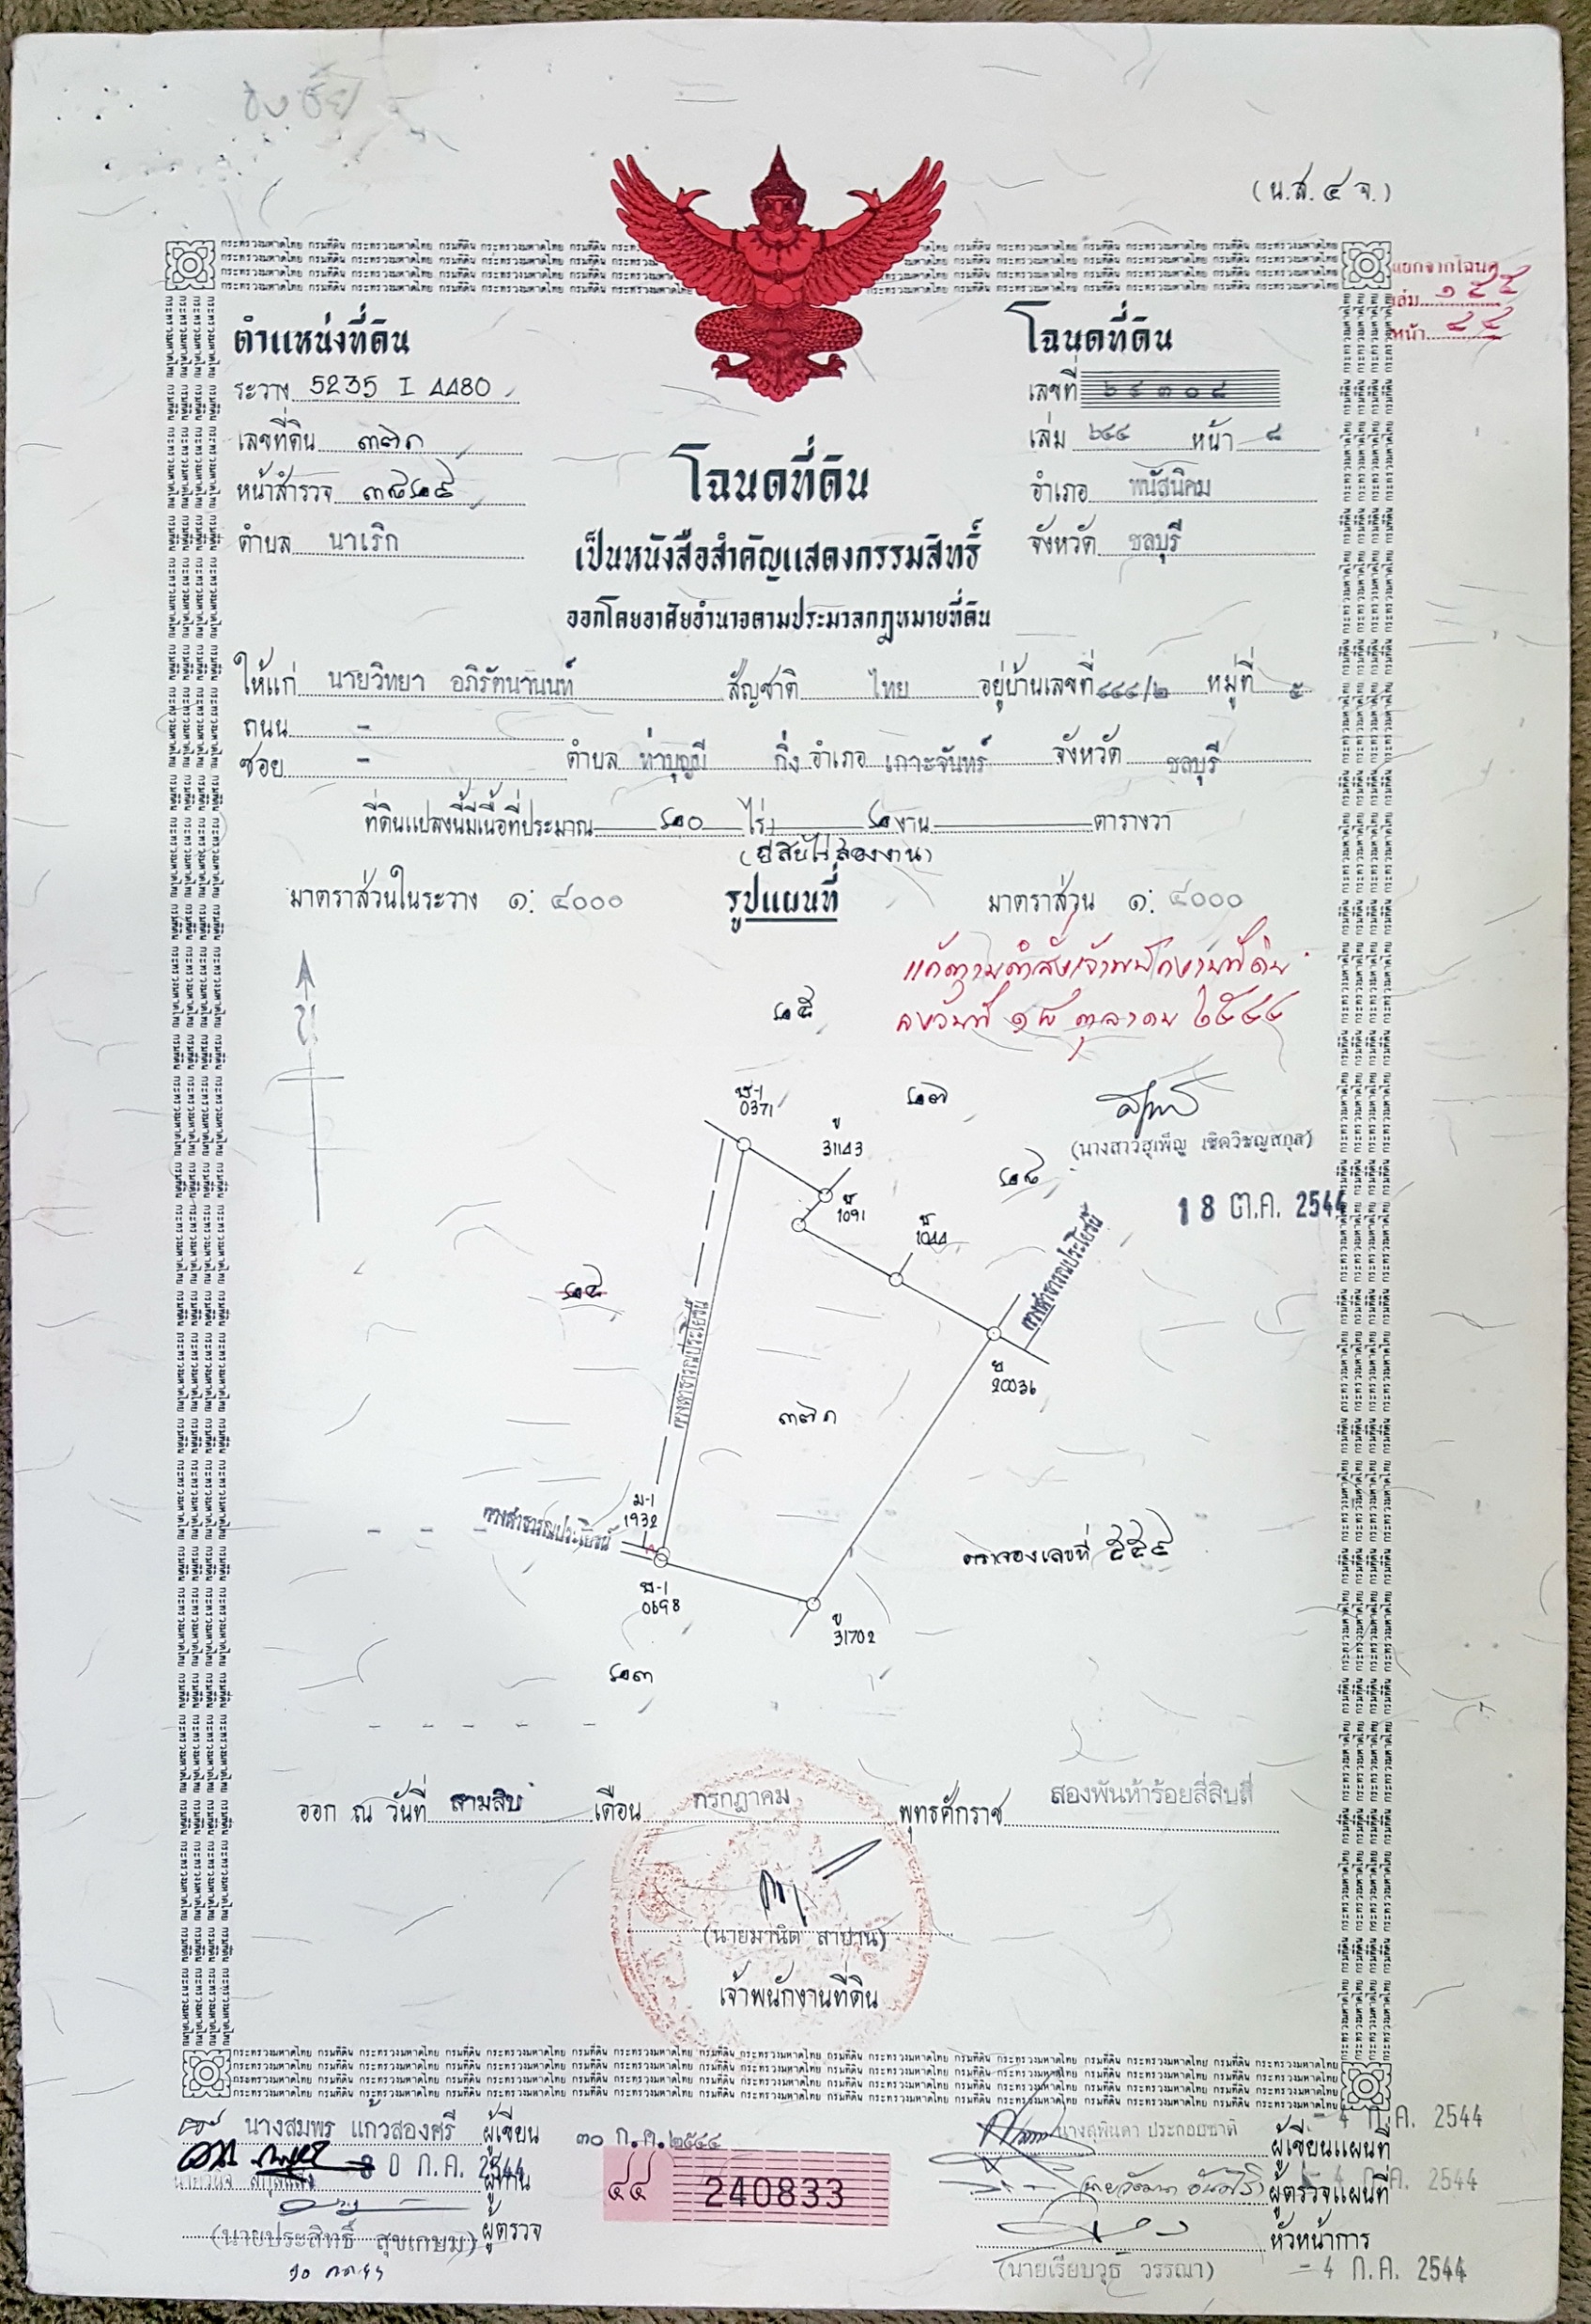 (น.ส.๔ จ.)
แยกจากโฉนด
เล่ม
หน้า
ตำแหน่งที่ดิน
โฉนดที่ดิน
ระวาง 5235 I 4480
เลขที่
เลขที่ดิน ๓๗๑
เล่ม ๖๔๔ หน้า ๘
โฉนดที่ดิน
หน้าสำรวจ
อำเภอ พนัสนิคม
ตำบล นาเริก
จังหวัด ชลบุรี
เป็นหนังสือสำคัญแสดงกรรมสิทธิ์
ออกโดยอาศัยอำนาจตามประมวลกฎหมายที่ดิน
ให้แก่ นายวิทยา อภิรัตนานนท์ สัญชาติ ไทย อยู่บ้านเลขที่ ๔๔๔/๒ หมู่ที่ ๕
ถนน -
ซอย - ตำบล ท่าบุญมี กิ่ง อำเภอ เกาะจันทร์ จังหวัด ชลบุรี
ที่ดินแปลงนี้มีเนื้อที่ประมาณ ๒๐ ไร่ ๒ งาน ตารางวา
(ยี่สิบไร่สองงาน)
มาตราส่วนในระวาง ๑: ๔๐๐๐ รูปแผนที่ มาตราส่วน ๑: ๔๐๐๐
แก้ตามคำสั่งเจ้าพนักงานที่ดิน
ลงวันที่ ๑๘ ตุลาคม ๒๕๔๔
น
๒๕
0371
๒๗
31143
(นางสาวสุเพ็ญ เชิดวิชญสกุล)
๒๘
1091
18 ต.ค. 2544
1044
ทางสาธารณประโยชน์
ทางสาธารณประโยชน์
20036
๓๗๑
ม-1
1932
ทางสาธารณประโยชน์
ตราจองเลขที่ ๕๕๙
0698
31702
๒๓
ออก ณ วันที่ สามสิบ เดือน กรกฎาคม พุทธศักราช สองพันห้าร้อยสี่สิบสี่
(นายมานิต สาปาน)
เจ้าพนักงานที่ดิน
นางสมพร แก้วสองศรี ผู้เขียน ๓๐ ก.ค.๒๕๔๔
นางสุพินดา ประกอบชาติ ผู้เขียนแผนที่ - 4 ก.ค. 2544
30 ก.ค. 2544 ผู้ทาน
๔๔ 240833
ผู้ตรวจแผนที่ - 4 ก.ค. 2544
(นายประสิทธิ์ สุขเกษม) ผู้ตรวจ
หัวหน้าการ
(นายเรียบวุธ วรรณา) - 4 ก.ค. 2544